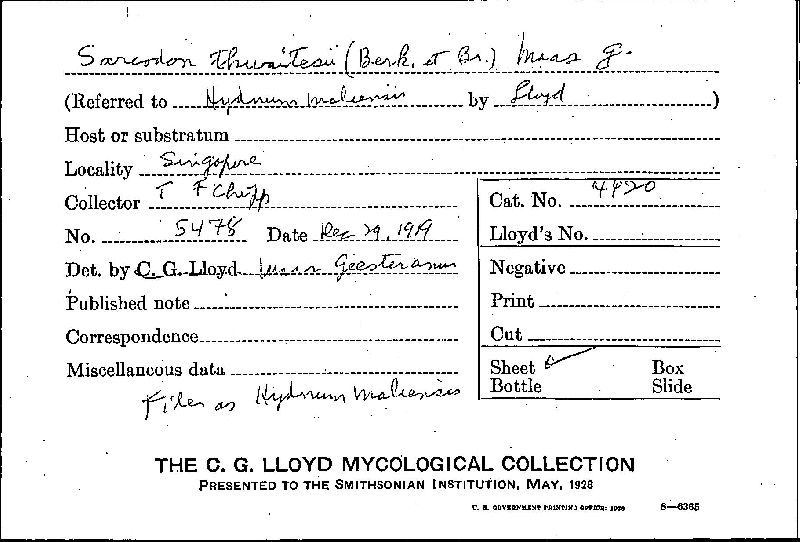 Sarcodon thwaitesii (Berk. et Br.) Maas G.
(Referred to Hydnum maliensis by Lloyd)
Host or substratum
Locality Singapore
Collector T F Chipp
Cat. No. 4420
No. 5478 Date Dec 29, 1919
Lloyd's No.
Det. by C. G. Lloyd Maas Geesteranus
Negative
Published note
Print
Correspondence
Cut
Miscellaneous data
Sheet ✓ Box
Bottle Slide
Filed as Hydnum maliensis
THE C. G. LLOYD MYCOLOGICAL COLLECTION
PRESENTED TO THE SMITHSONIAN INSTITUTION, MAY, 1928
U. S. GOVERNMENT PRINTING OFFICE: 1928 8—6365